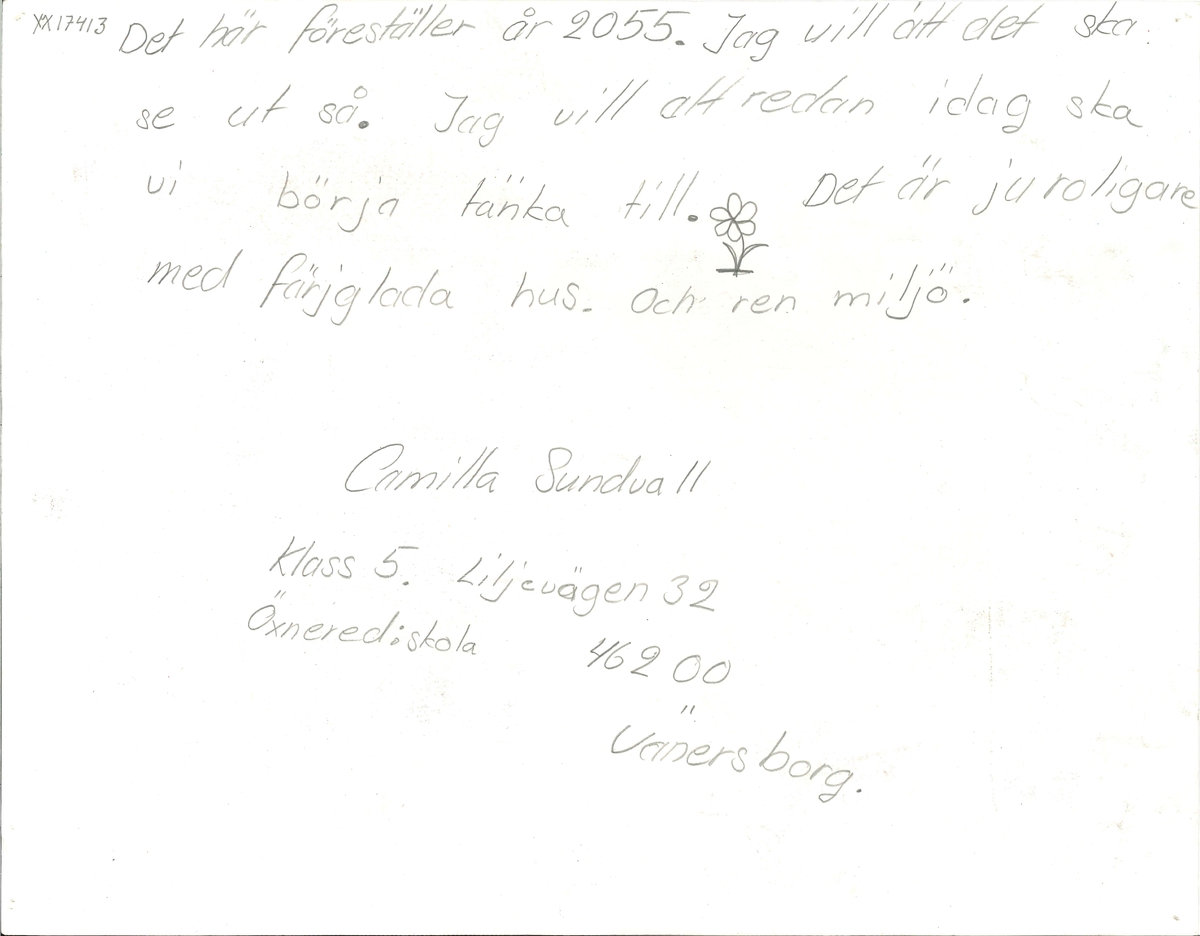 XX17413 Det här föreställer år 2055. Jag vill att det ska
se ut så. Jag vill att redan idag ska
vi börja tänka till. Det är ju roligare
med färjglada hus. Och ren miljö.
Camilla Sundvall
Klass 5. Liljevägen 32
Öxnered:skola 46200
Vänersborg.